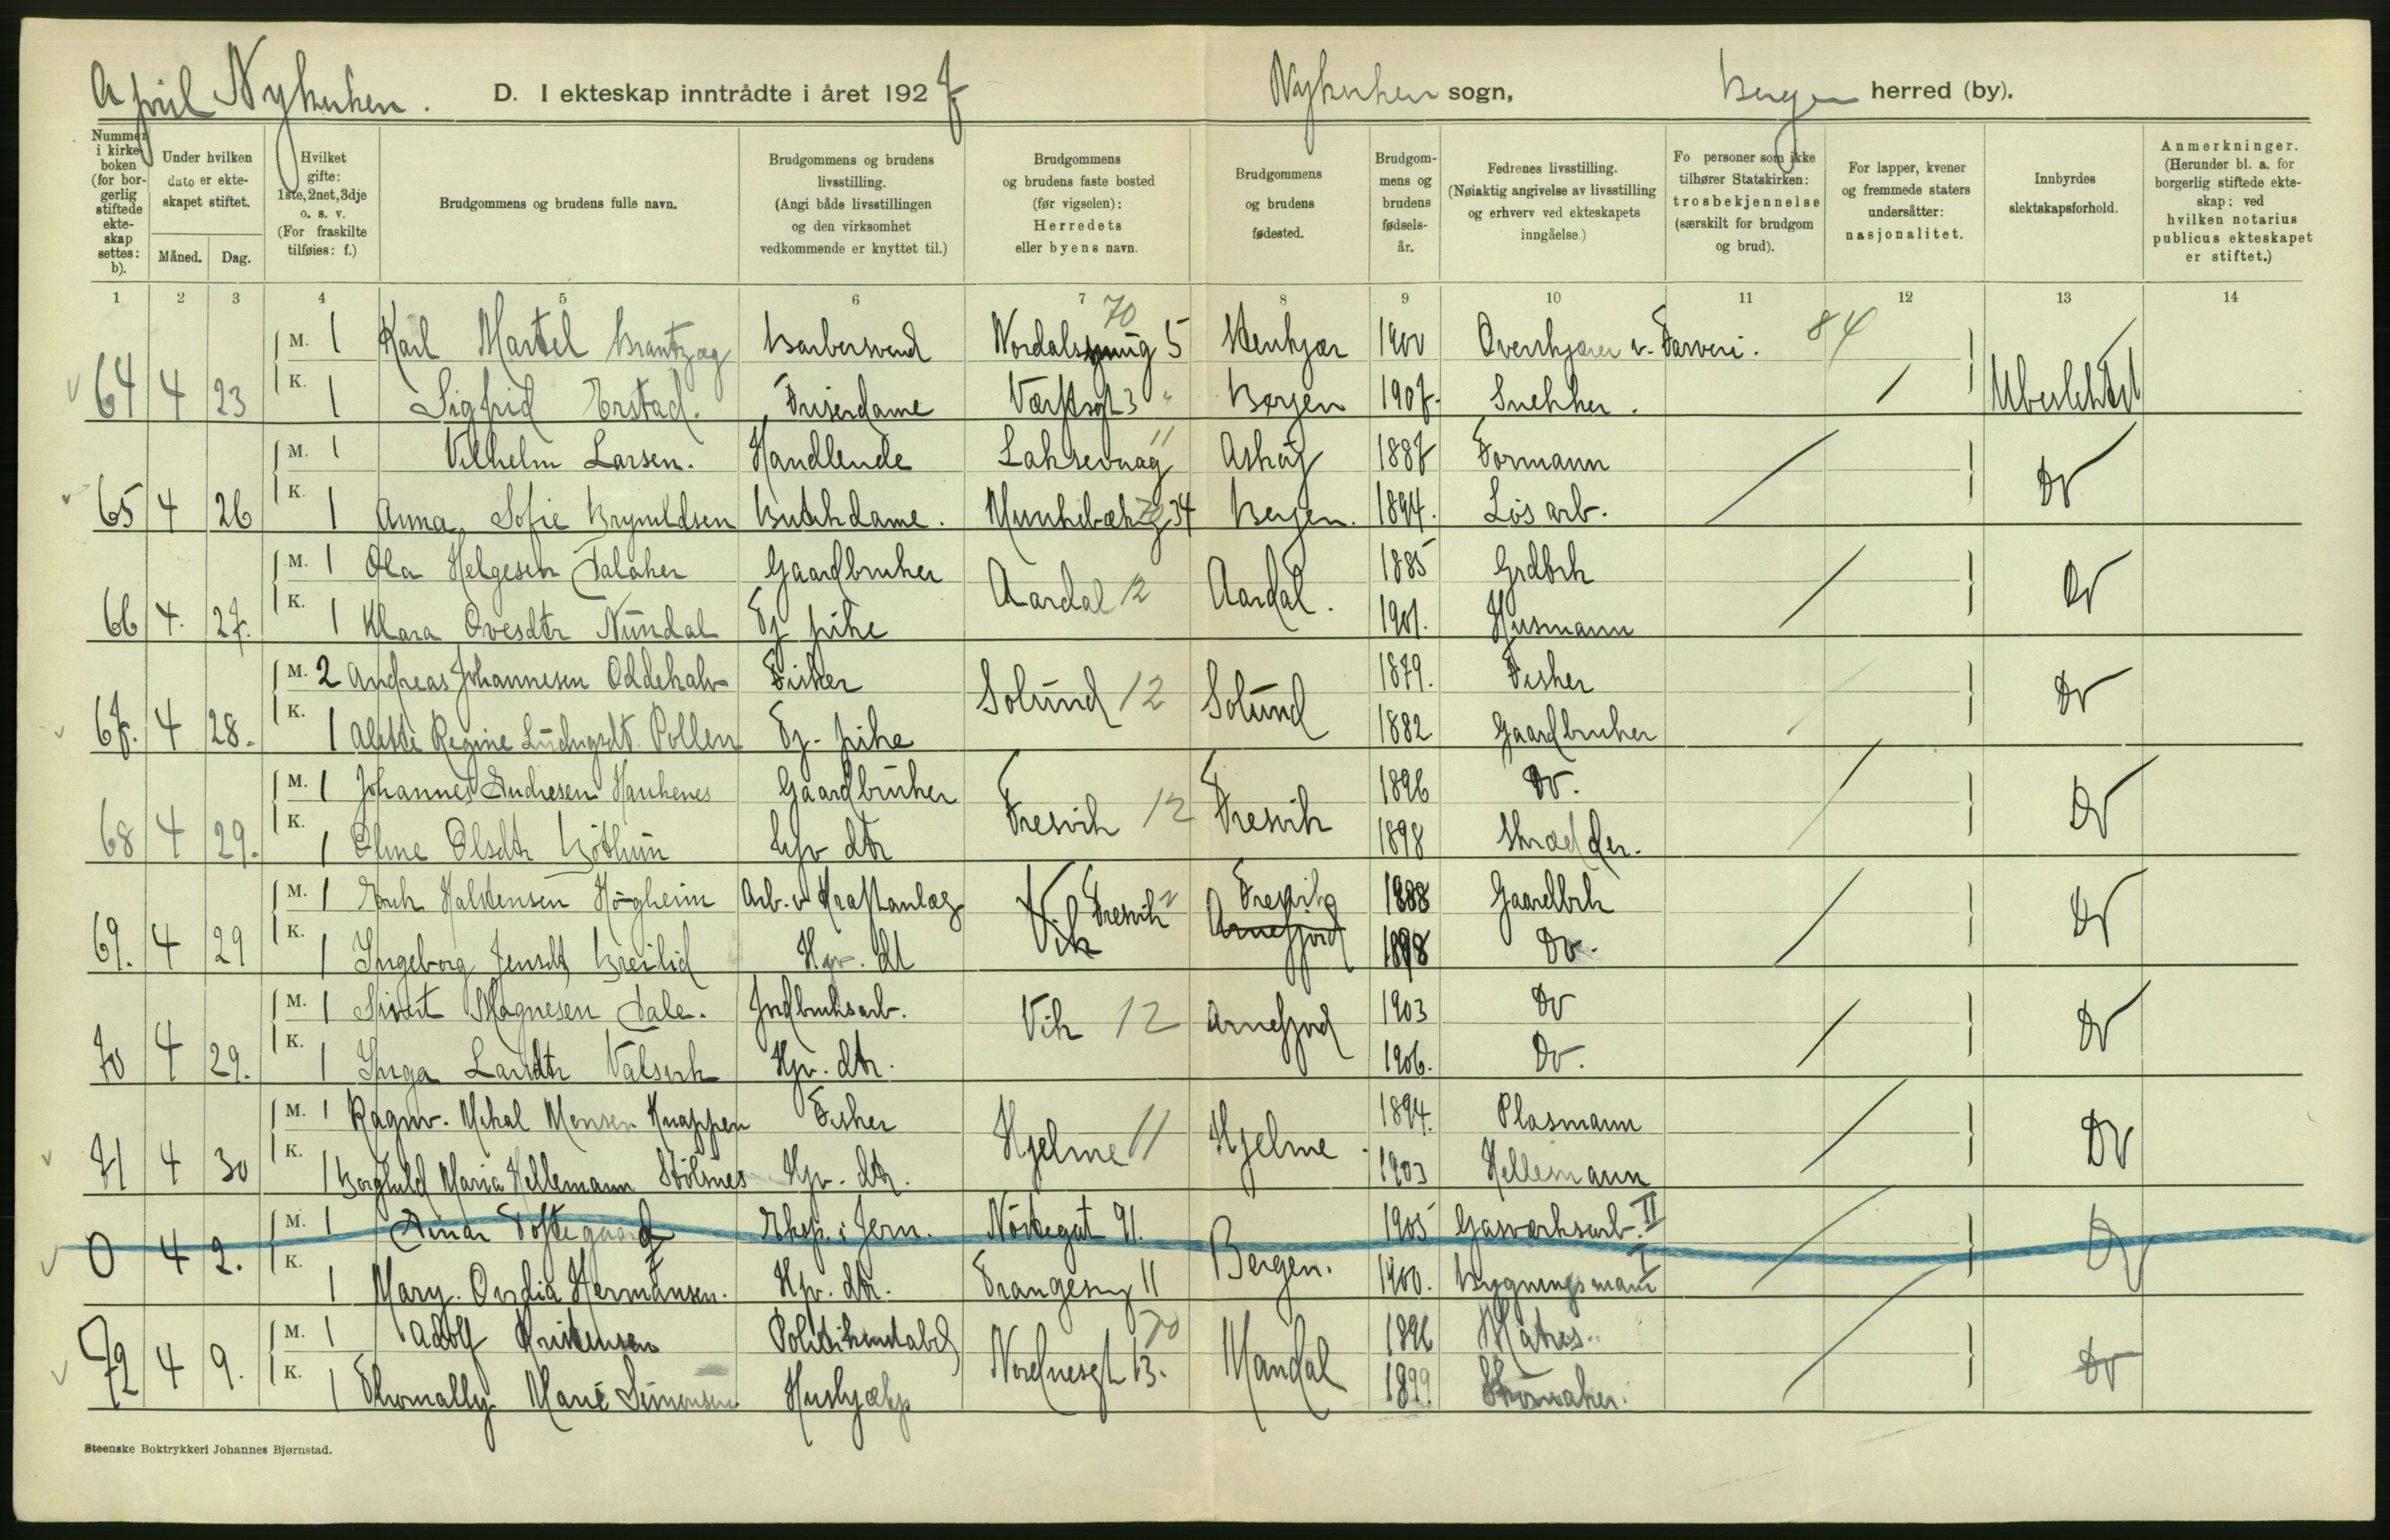 April Nykirken. D. I ekteskap inntrådte i året 1927 Nykirken sogn, Bergen herred (by).
Nummer i kirkeboken (for borgerlig stiftede ekteskap settes: b).
Under hvilken dato er ekteskapet stiftet.
Måned. Dag.
Hvilket gifte: 1ste, 2net, 3dje o. s. v. (For fraskilte tilføies: f.)
Brudgommens og brudens fulle navn.
Brudgommens og brudens livsstilling. (Angi både livsstillingen og den virksomhet vedkommende er knyttet til.)
Brudgommens og brudens faste bosted (før vigselen): Herredets eller byens navn.
Brudgommens og brudens fødested.
Brudgommens og brudens fødselsår.
Fedrenes livsstilling. (Nøiaktig angivelse av livsstilling og erhverv ved ekteskapets inngåelse.)
Fo personer som ikke tilhører Statskirken: trosbekjennelse (særskilt for brudgom og brud).
For lapper, kvener og fremmede staters undersåtter: nasjonalitet.
Innbyrdes slektskapsforhold.
Anmerkninger. (Herunder bl. a. for borgerlig stiftede ekteskap: ved hvilken notarius publicus ekteskapet er stiftet.)
1 2 3 4 5 6 7 8 9 10 11 12 13 14
M. 1 Karl Martel Brantzæg Barbersvend Nordals 5 70 Stenkjær 1900 Overskjærer v. Farveri. 84
64 4 23 K. 1 Sigfrid Erstad. Friserdame Værftsgt 3 " Bergen 1907. Snekker. Ubeslektet
M. 1 Vilhelm Larsen. Handlende Laksevaag 11 Askøy 1887 Formann
65 4 26 K. 1 Anna Sofie Brynildsen Butikdame. 34 Bergen. 1894. Løsarb. Do
M. 1 Ola Helgesen Dalaker Gaardbruker Aardal 12 Aardal. 1885 Grdbrk
66 4. 27. K. 1 Klara Ovesdtr Nundal Tj pike 1901. Husmann Do
M. 2 Andreas Johannesen Oddekalv Fisker Solund 12 Solund 1879. Fisker
67. 4 28. K. 1 Alette Regine Ludvigsdt. Pollen Tj. pike 1882 Gaardbruker Do
M. 1 Johannes Andresen Haukenes Gaardbruker Fresvik 12 Fresvik 1896 Do.
68 4 29. K. 1 Oline Olsdtr Bøthun Hjv dtr 1898 Skrædder. Do
M. 1 Halstensen Høgheim Arb. v. Kraftanlæg Fresvik Fresvik 1888 Gaardbrk
69. 4 29 K. 1 Ingeborg Jensdt Breilid Hjv. dt Vik Arnefjord 1898 Do. Do
M. 1 Sivert Magnesen Dale. Jordbruksarb. Vik 12 Arnefjord 1903 Do
70 4 29. K. 1 Inga Larsdtr Valsvik Hjv. dtr. 1906. Do. Do
M. 1 Ragnv. Mikal Monsen Knappen Fisker Hjelme 11 Hjelme 1894. Plasmann
71 4 30 K. 1 Borghild Maria Hellemann Stölsnes Hjv. dtr. 1903 Hellemann Do
M. 1 Einar Toftegaard Eksp. i Jern. Nöstegat 91. Bergen. 1905 Gasværksarb. II
0 4 2. K. 1 Mary Ovidia Hermansen. Hjv. dtr. Frangesmg 11 1900. Bygningsmann I Do
M. 1 Adolf Kristensen Politikonstabel Nordnesgt 13. 70 Mandal 1896 Matros
72 4 9. K. 1 Thomally Marie Simonsen Hushjælp 1899. Skomaker. Do
Steenske Boktrykkeri Johannes Bjørnstad.